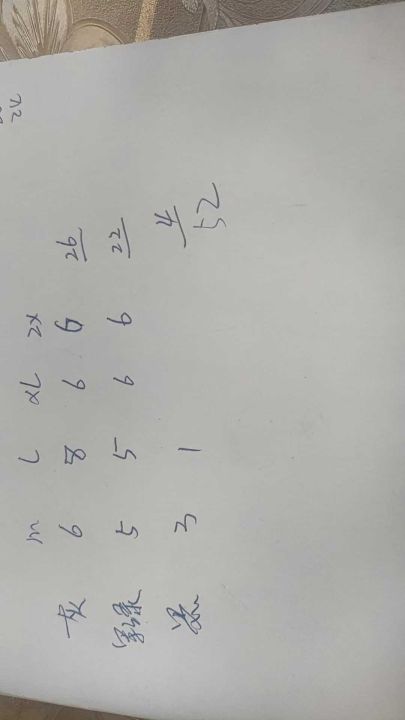 M L XL 2X
灰 6 8 6 6 26
5 5 6 6 22
3 1 4
52